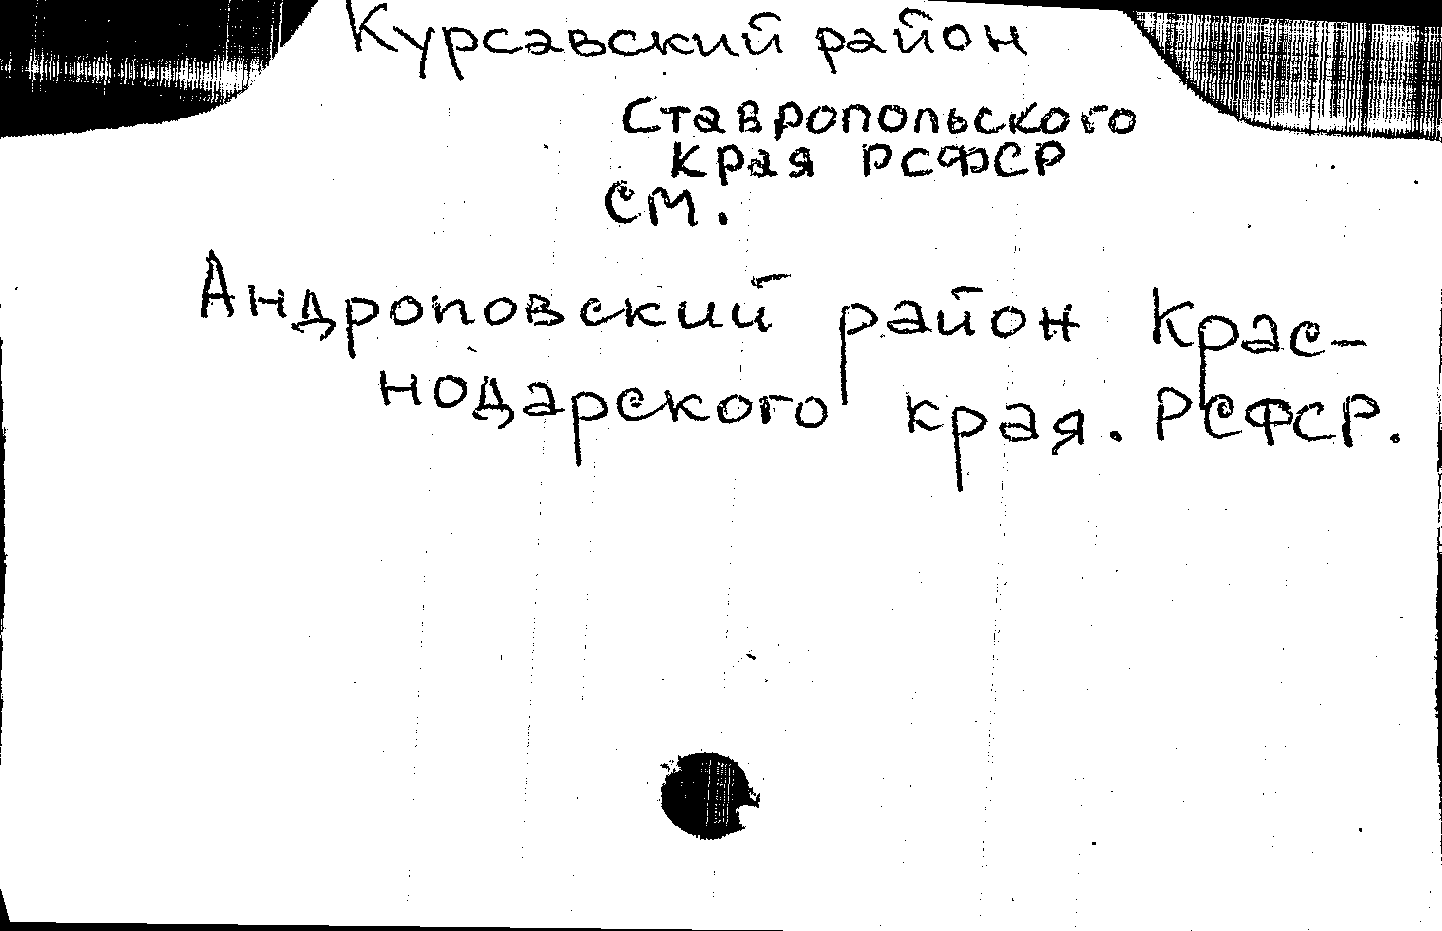 Курсавский район
Ставропольского
края РСФСР
см.
Андроповский район Крас-
нодарского края. РСФСР.